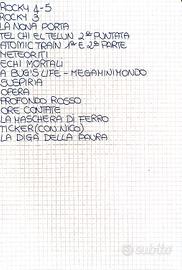 ROCKY 4-5
ROCKY 3
LA NONA PORTA
TEL CHI EL TELUN 2ª PUNTATA
ATOMIC TRAIN 1ª E 2ª PARTE
METEORITI
ECHI MORTALI
A BUG'S LIFE - MEGAMINIMONDO
SUSPIRIA
OPERA
PROFONDO ROSSO
ORE CONTATE
LA MASCHERA DI FERRO
TICKER (CON NICO)
LA DIGA DELLA PAURA
subito